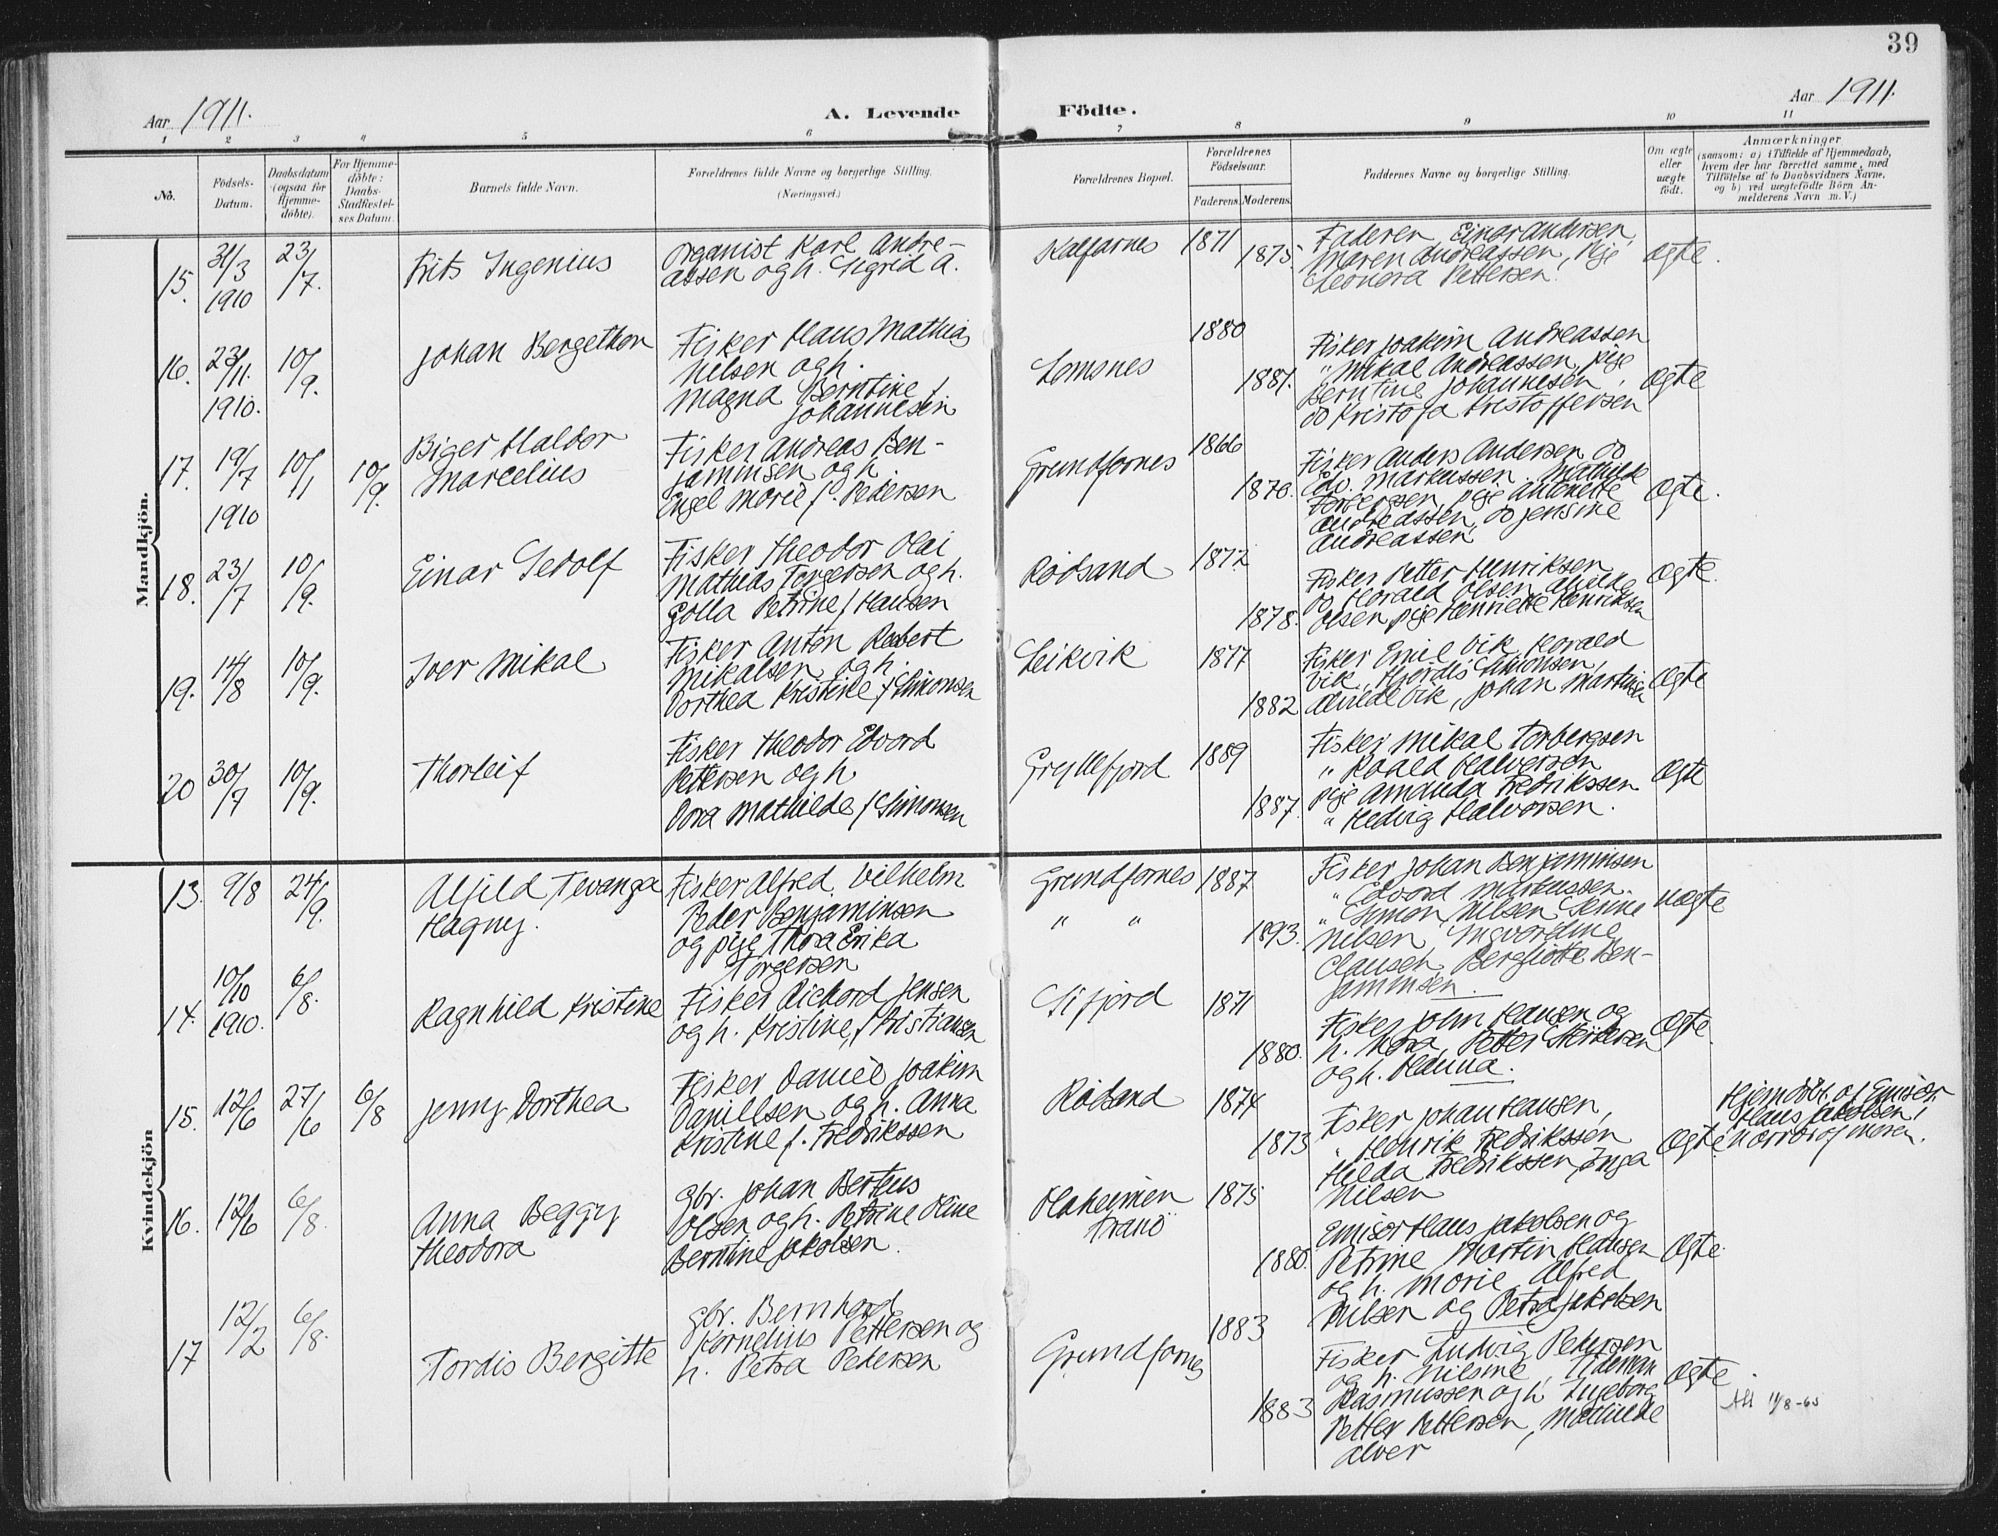 39
Aar 1911.
A. Levende Födte.
Aar 1911.
1 2 3 4 5 6 7 8 9 10 11
No.
Födsels-
Datum.
Daabsdatum
(ogsaa for
Hjemme-
döbte).
For Hjemme-
döbte:
Daabs-
Stadfæstel-
ses Datum.
Barnets fulde Navn.
Forældrenes fulde Navne og borgerlige Stilling.
(Næringsvei.)
Forældrenes Bopæl.
Forældrenes
Födselsaar.
Faderens. Moderens.
Faddernes Navne og borgerlige Stilling.
Om ægte
eller
uægte
födt.
Anmærkninger
(saasom: a) i Tilfælde af Hjemmedaab,
hvem der har forrettet samme, med
Tilföielse af to Daabsvidners Navne,
og b) ved uægtefödte Börn An-
melderens Navn m. V.)
Mandkjön.
15. 31/3 1910 23/7.
Frits Ingenius
Organist Karl Andre-
assen og h. Sigrid A.
Kalfarnes
1871
1875
Faderen, Einar Andersen,
Maren Andreassen, pige
Leonora Pettersen.
Ægte.
16. 23/11. 1910. 10/9.
Johan Bergethon
Fisker Hans Mathias
Nilsen og h.
Magna Berntine f.
Johannesen
Lemsnes
1880
1881.
Fisker Joakim Andreassen
" Mikal Andreassen, pige
Berntine Johannesen,
do Kristofa Kristoffersen
Ægte
17. 19/7 1910 10/11 10/9.
Biger Haldor
Marcelius
Fisker Andreas Ben-
jaminsen og h.
Engel Marie f. Pedersen
Grundfarnes
1866
1870.
Fisker Anders Andersen do
Edv. Markussen. Mathilde
Torbergsen, pige Antonette
Andreassen, do Jensine
Andreassen
Ægte.
18. 23/7 10/9.
Einar Sedolf
Fisker Theodor Olai
Mathias Torgersen og h.
Golla Petrine f Hansen
Rödsand
1877
1878.
Fisker Petter Henriksen
do Harald Olsen,
Olsen, pige Henriette Henriksen
Ægte.
19. 14/8 10/9.
Iver Mikal
Fisker Anton Robert
Mikalsen og h.
Dorthea Kristine f Simonsen
Leikvik
1877
1882
Fisker Emil Vik, Harald
Vik, Hjørdis Simonsen,
Vik, Johan Martinsen
Ægte
20 30/7 10/9.
Thorleif
Fisker Theodor Edvard
Pettersen og h
Dora Mathilde f Simonsen
Gryllefjord
1889
1887.
Fisker Mikal Torbergsen
" Roald Halvorsen
pige Amanda Fredrikssen
" Hedvig Halvorsen.
Ægte
Kvindekjön
13. 9/8 24/9.
Alfild Tevanga
Hagny.
Fisker Alfred Vilhelm
Peder Benjaminsen
og pige Thora Erika
Torgersen
Grundfarnes
" "
1887
1893.
Fisker Johan Benjaminsen
" Edvard Markussen.
" Simon Nilsen, Senine
Nilsen, Ingvardine
Clausen, Bergliotte Ben-
jaminsen.
uægte
14. 10/10 1910. 6/8.
Ragnhild Kristine
Fisker Richard Jensen
og h. Kristine f. Kristiansen
Sifjord
1871
1880.
Fisker John Hansen og
h. Nora, Petter
og h. Hanna.
Ægte.
15. 12/6 27/6 6/8
Jenny Dorthea
Fisker Daniel Joakim
Daniellsen og h. Anna
Kristine f. Fredrikssen
Rödsand
1874
1873
Fisker Johan Hansen,
" Henrik Fredrikssen
Hilda Fredrikssen, Inga
Nilsen
Ægte
Hjemdøbt af Emisær
Hans Jakobsen,
Nærvær af moren.
16. 12/6 6/8.
Anna Beggy
Theodora
gbr. Johan Berteus
Olsen og h. Petrine Oline
Berntine Jakobsen.
Olaheimen
Tranö
1875
1880.
Emisær Hans Jakobsen og
Petrine Martin Hansen
og h. Marie, Alfred
Nilsen og Petra Jakobsen
Ægte
17 12/2 6/8.
Tordis Bergitte
gbr. Bernhard
Kornelius Pettersen og
h. Petra Pedersen
Grundfarnes
1883
1883
Fisker Ludvig Pedersen
og h. Nilsine, Tideman
Rasmussen og h Ingeborg
Petter Pettersen, Mathilde
Alver
Ægte
Alt 11/8-65